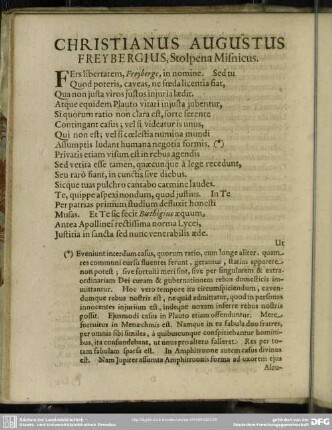 CHRISTIANUS AUGUSTUS
FREYBERGIUS, Stolpena Misnicus.
FErs libertatem, Freyberge, in nomine. Sed tu
Quod poteris, caveas, ne fœda licentia fiat,
Qua non justa viros justos injuria lædit.
Atque equidem Plauto vitari injusta jubentur,
Si quorum ratio non clara est, forte ferente
Contingant casus; vel si videatur is unus,
Qui non est; vel si cœlestia numina mundi
Assumptis ludant humana negotia formis. (*)
Privatis etiam visum est in rebus agendis
Sed vetita esse tamen, quæcunque à lege recedunt,
Seu raro fiant, in cunctis sive diebus.
Sicque tuas pulchro cantabo carmine laudes.
Te, quippe aspexi nondum, quod justius. In Te
Per patrias primum studium deflexit honesti
Musas. Et Te sic fecit Buchigius æquum,
Antea Apollinei rectissima norma Lycei,
Justitia in sancta sed nunc venerabilis æde.
Ut
(*) Eveniunt interdum casus, quorum ratio, cum longe aliter, quam
res communi cursu fluentes ferunt, geratur, statim apparere
non potest; sive fortuiti meri sint, sive per singularem & extra-
ordinariam Dei curam & gubernationem rebus domesticis im-
mittantur. Hoc vero tempore ita circumspiciendum, caven-
dumque rebus nostris est, ne quid admittatur, quod in personas
innocentes injurium est, indeque noxam inferre rebus nostris
possit. Ejusmodi casus in Plauto etiam offenduntur. Mere
fortuitus in Menæchmis est. Namque in ea fabula duo fratres,
per omnia sibi similes, à quibuscunque conspitiebantur homini-
bus, ita confundebant, ut unus pro altero falleret. Res per to-
tam fabulam sparsa est. In Amphitruone autem casus divinus
est. Nam Jupiter assumta Amphitruonis forma ad uxorem ejus
Alcu-